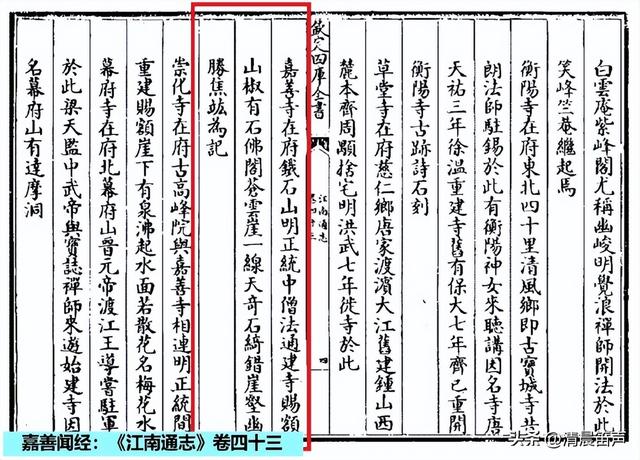 白雲庵紫峰閣尤稱幽峻明覺浪禪師開法於此
笑峰竺菴繼起焉
衡陽寺在府東北四十里清風鄉即古寶城寺昔
朗法師駐錫於此有衡陽神女來聽講因名寺唐
天祐三年徐溫重建寺舊有保大七年齊已重開
衡陽寺古跡詩石刻
草堂寺在府慈仁鄉唐家渡濱大江舊建鍾山西
麓本齊周顒捨宅明洪武七年徙寺於此
欽定四庫全書
江南通志
卷四十三
四
嘉善寺在府鐵石山明正統中僧法通建寺賜額
山椒有石佛閣蒼雲崖一線天奇石綺錯崖壑幽
勝焦竑為記
崇化寺在府古高峰院與嘉善寺相連明正統間
重建賜額崖下有泉沸起水面若散花名梅花水
幕府寺在府北幕府山晉元帝渡江王導嘗駐軍
於此梁天監中武帝與寶誌禪師來遊始建寺因
名幕府山有達摩洞
嘉善闻经：《江南通志》卷四十三
头条 @清晨笛声